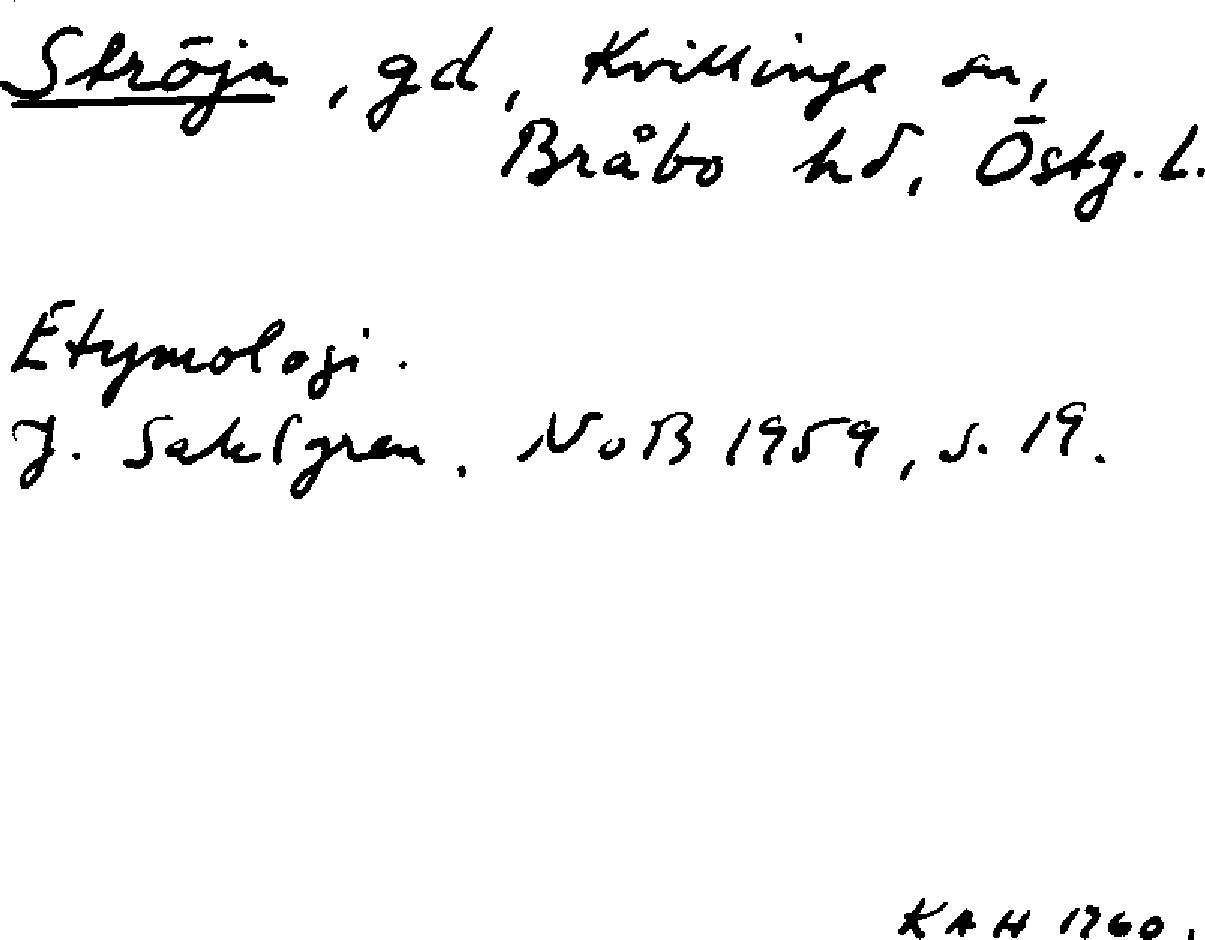 Ströja, gd, Kvillinge sn,
Bråbo hd, Östg. l.
Etymologi.
J. Sahlgren. NoB 1959, s. 19.
KAH 1960.